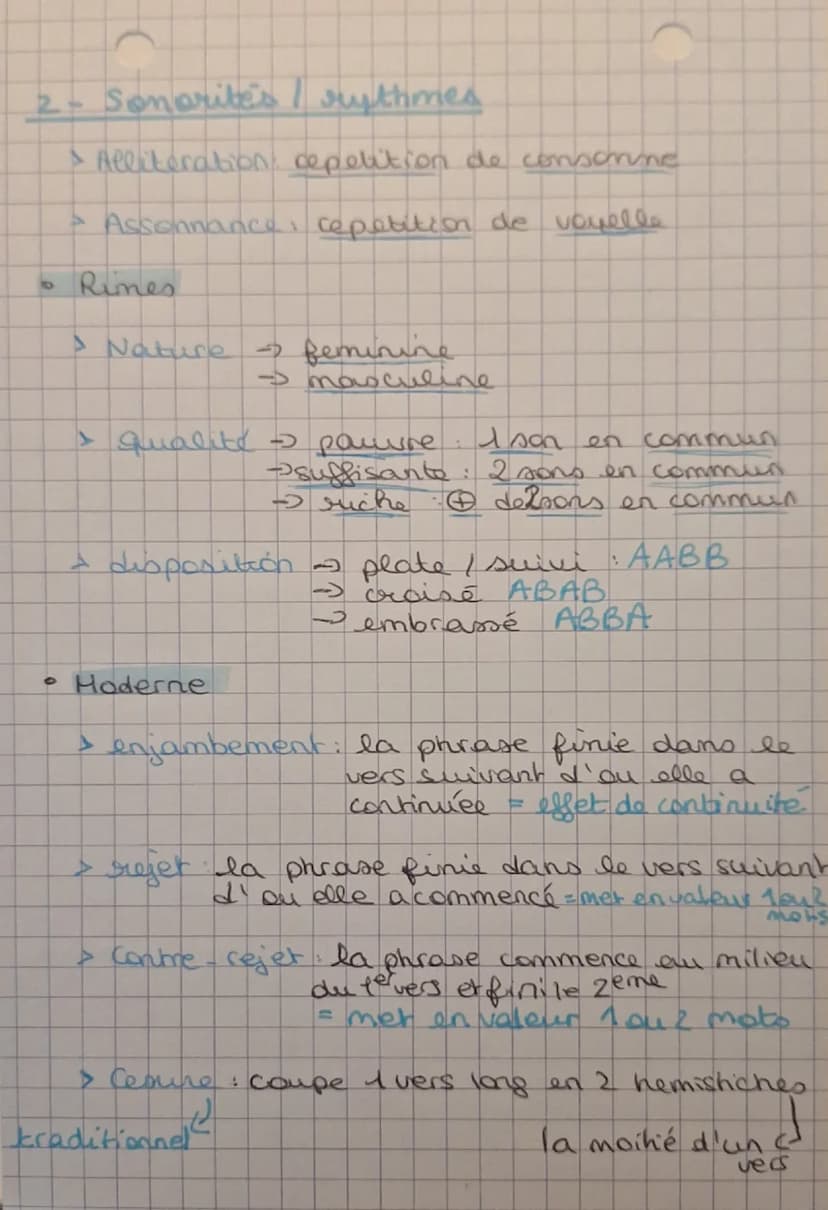 2 - Sonorités / rythmes
> Alliteration : repetition de consonne
> Assonnance : repetition de voyelle
• Rimes
> Nature → feminine
→ masculine
> Qualité → pauvre : 1 son en commun
→ suffisante : 2 sons en commun
→ riche : ⊕ de 2 sons en commun
> disposition → plate / suivi : AABB
→ croisé ABAB
→ embrassé ABBA
• Moderne
> enjambement : la phrase finie dans le
vers suivant d'ou elle a
continuée = effet de continuité
> rejet : la phrase finie dans le vers suivant
d'ou elle a commencé = met en valeur 1 ou 2
mots
> Contre-rejet : la phrase commence au milieu
du 1er vers et fini le 2eme
= met en valeur 1 ou 2 mots
> Cesure : coupe 1 vers long en 2 hemistiches
traditionnel
la moitié d'un
vers